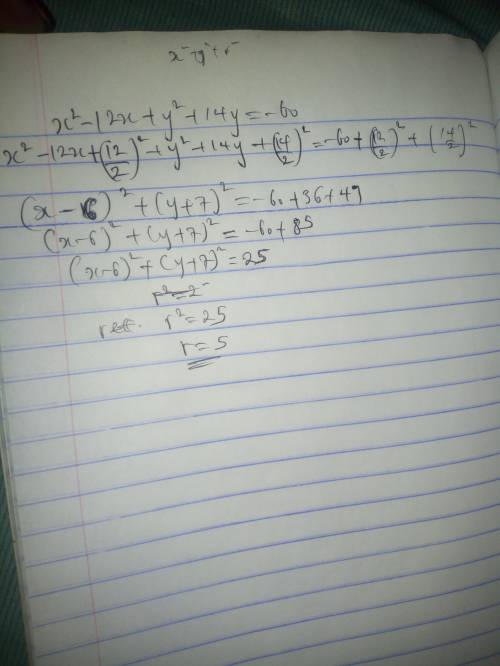 x² - 12x + y² + 14y = -60
x² - 12x + (12/2)² + y² + 14y + (14/2)² = -60 + (12/2)² + (14/2)²
(x - 6)² + (y + 7)² = -60 + 36 + 49
(x - 6)² + (y + 7)² = -60 + 85
(x - 6)² + (y + 7)² = 25
r² = 25
r = 5